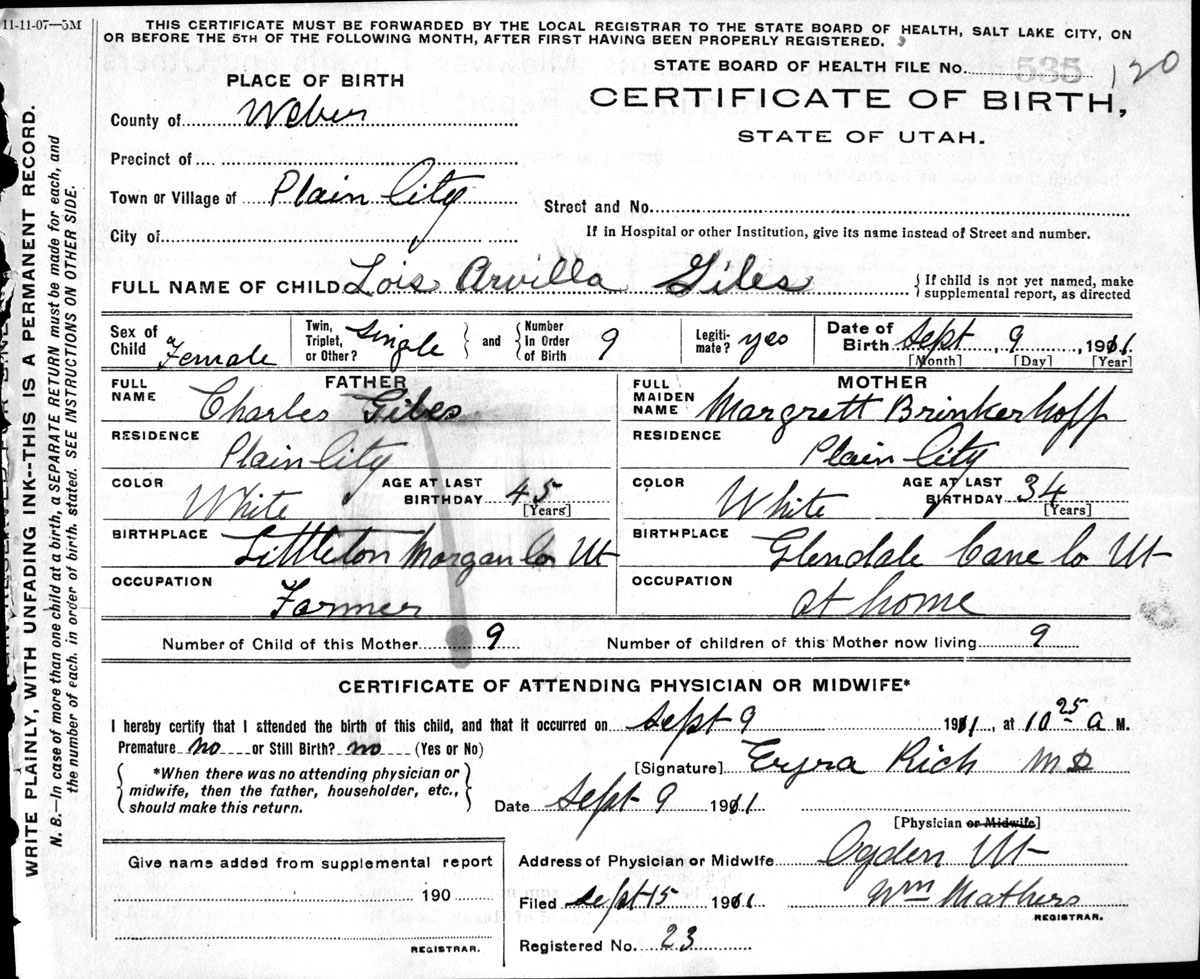 11-11-07—5M
THIS CERTIFICATE MUST BE FORWARDED BY THE LOCAL REGISTRAR TO THE STATE BOARD OF HEALTH, SALT LAKE CITY, ON
OR BEFORE THE 5TH OF THE FOLLOWING MONTH, AFTER FIRST HAVING BEEN PROPERLY REGISTERED.
STATE BOARD OF HEALTH FILE No. 535 120
PLACE OF BIRTH
CERTIFICATE OF BIRTH,
STATE OF UTAH.
County of Weber
Precinct of
Town or Village of Plain City
Street and No.
City of
If in Hospital or other Institution, give its name instead of Street and number.
FULL NAME OF CHILD Lois Arvilla Giles { If child is not yet named, make
supplemental report, as directed
Sex of Child Female
Twin, Triplet, or Other? Single } and { Number In Order of Birth 9
Legitimate? yes
Date of Birth Sept 9, 1911
[Month] [Day] [Year]
FATHER
FULL NAME Charles Giles
RESIDENCE Plain City
COLOR White AGE AT LAST BIRTHDAY 45 [Years]
BIRTHPLACE Littleton Morgan Co Ut
OCCUPATION Farmer
MOTHER
FULL MAIDEN NAME Margrett Brinkerhoff
RESIDENCE Plain City
COLOR White AGE AT LAST BIRTHDAY 34 [Years]
BIRTHPLACE Glendale Cane Co Ut
OCCUPATION at home
Number of Child of this Mother 9 Number of children of this Mother now living 9
CERTIFICATE OF ATTENDING PHYSICIAN OR MIDWIFE*
I hereby certify that I attended the birth of this child, and that it occurred on Sept 9 1911, at 10 25 A M.
Premature no or Still Birth? no (Yes or No)
{ *When there was no attending physician or
midwife, then the father, householder, etc.,
should make this return. }
[Signature] Ezra Rich MD
Date Sept 9 1911
[Physician or Midwife]
Give name added from supplemental report
190
REGISTRAR.
Address of Physician or Midwife Ogden Ut
Filed Sept 15 1911 Wm Mathers
REGISTRAR.
Registered No. 23
WRITE PLAINLY, WITH UNFADING INK--THIS IS A PERMANENT RECORD.
N. B.—In case of more than one child at a birth, a SEPARATE RETURN must be made for each, and
the number of each, in order of birth, stated. SEE INSTRUCTIONS ON OTHER SIDE.